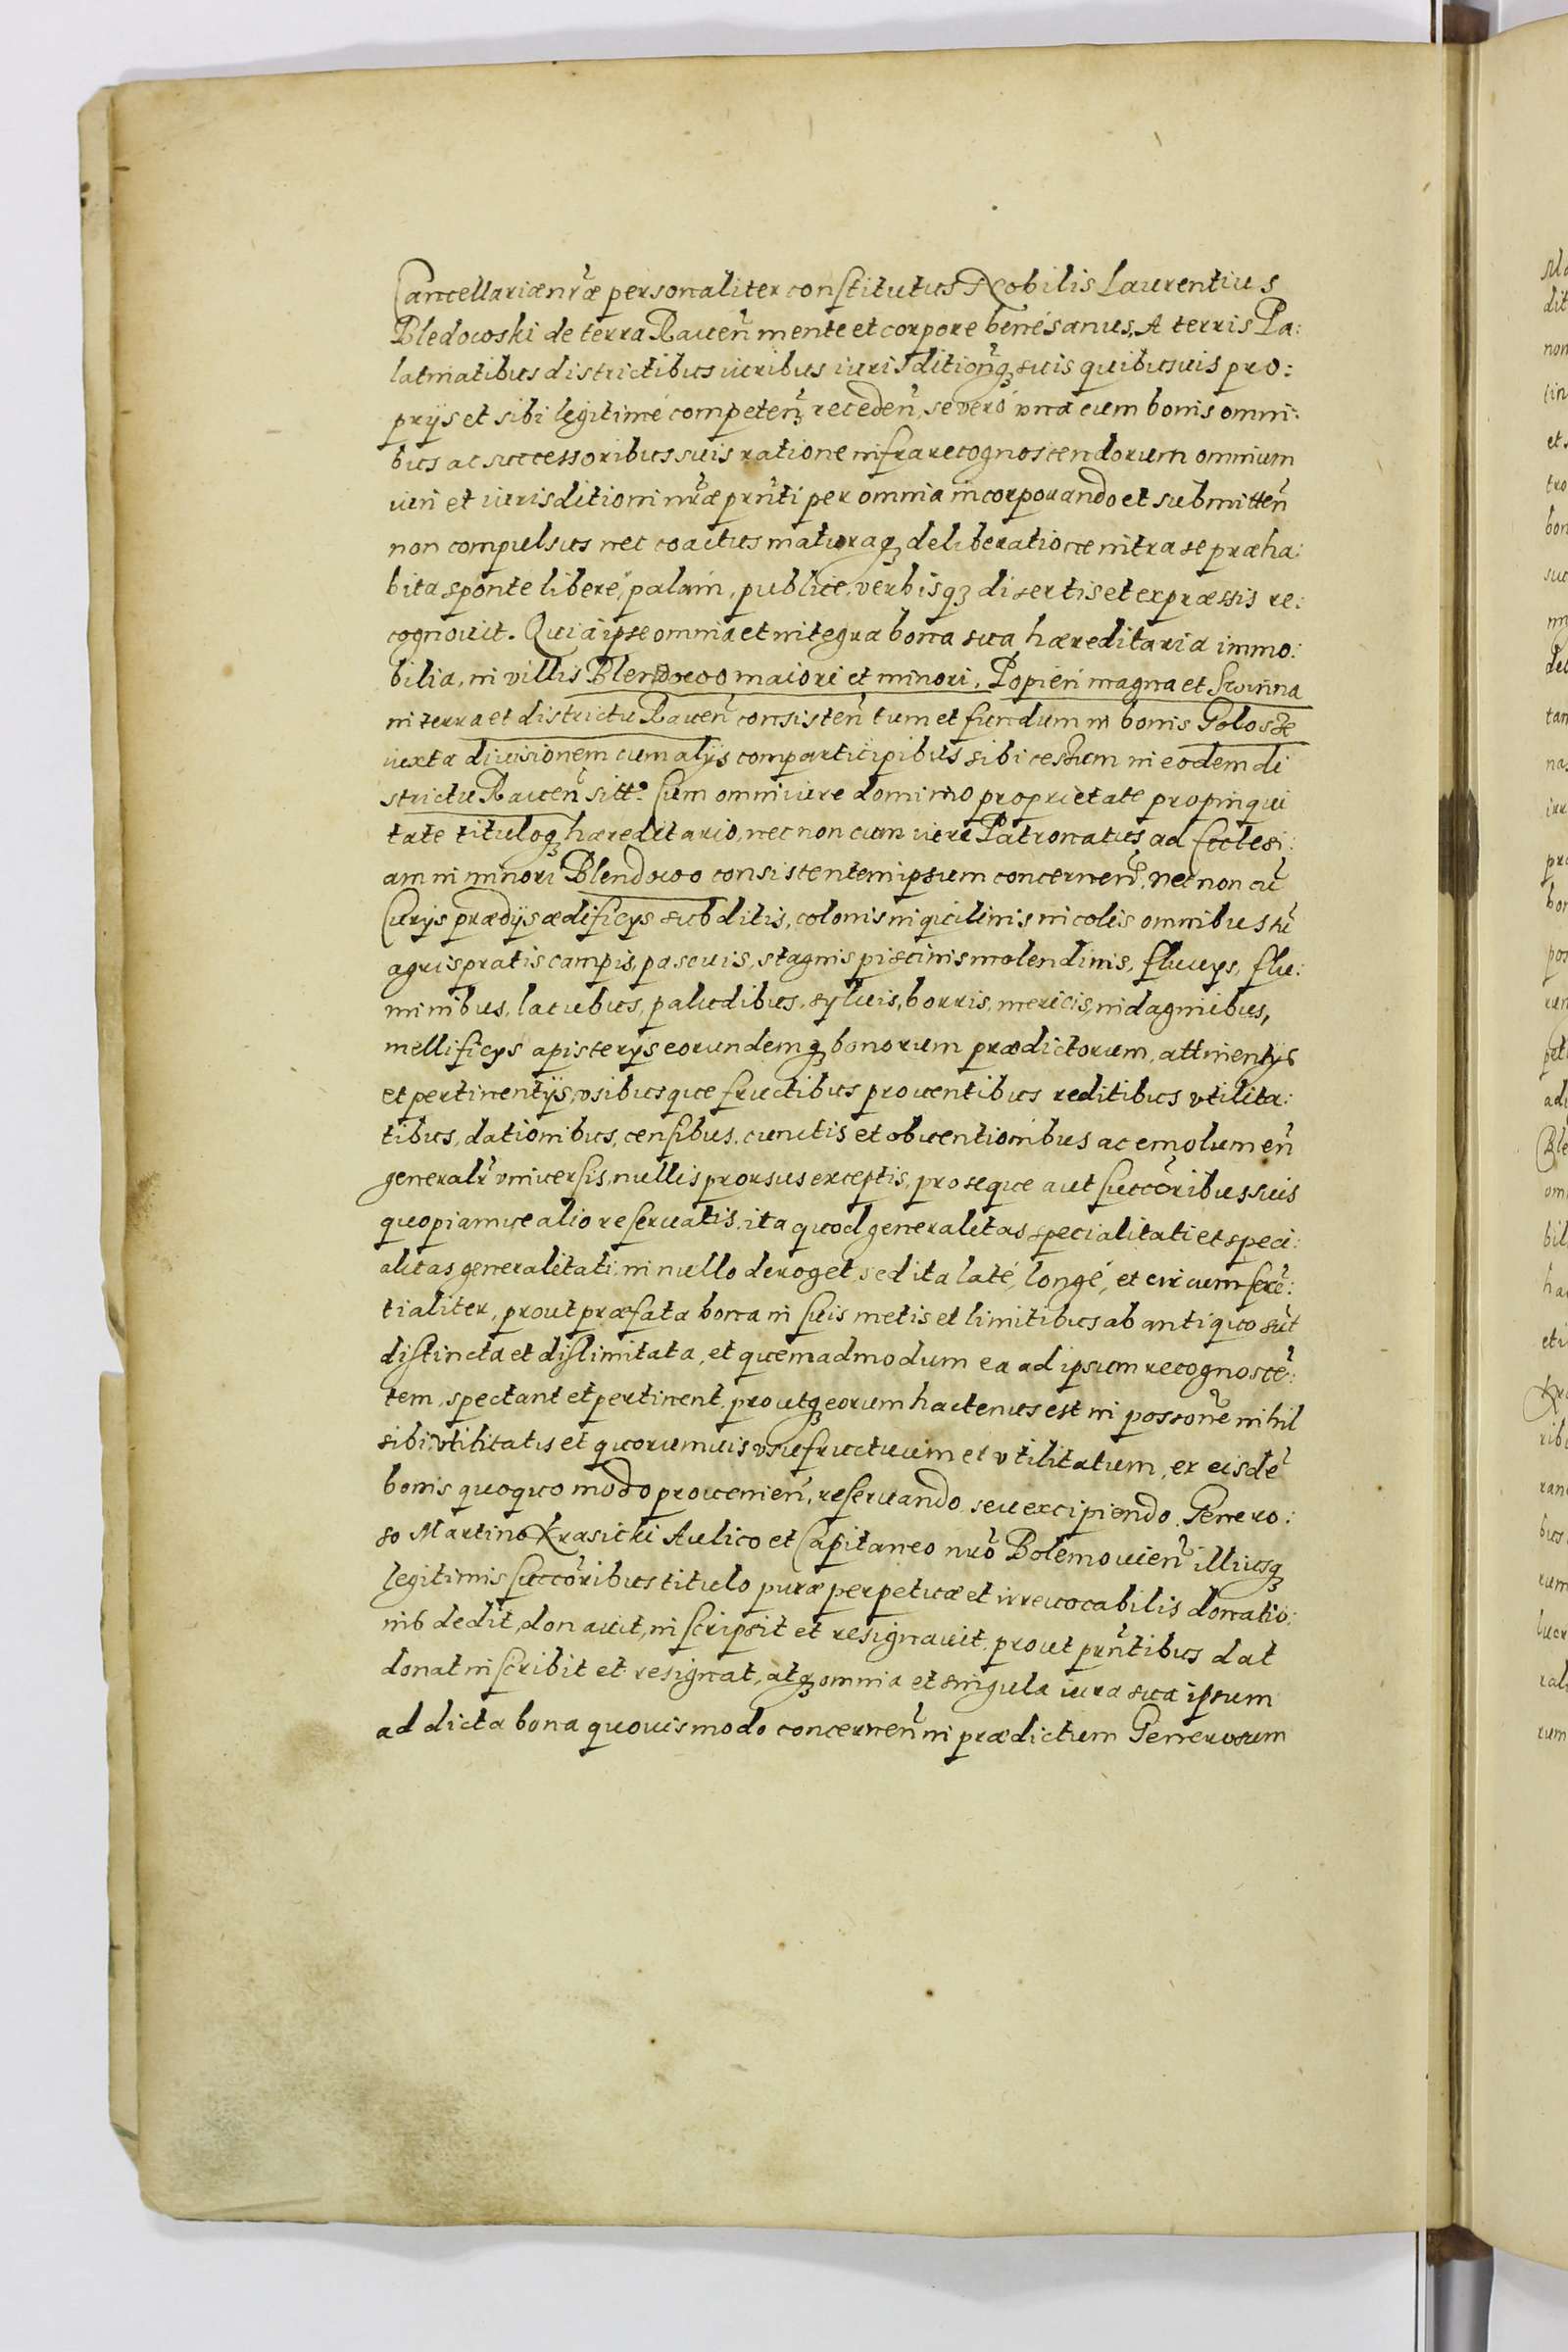 Cancellariæ nr̃æ personaliter constitutus Nobilis Laurentius
Bledowski de terra Raueñ mente et corpore bene sanus, A terris Pa:
latinatibus districtibus iuribus iurisditioñqꝫ suis quibusuis pro:
prijs et sibi legitimé competeñ recedeñ, se veró vna cum bonis omni:
bus ac successoribus suis ratione infra recognoscendorum omnium
iuri et iurisditioni nr̃æ prñti per omnia incorporando et submitteñ
non compulsus nec coactus maturaqꝫ deliberatione intra se præha:
bita sponte liberé, palam, publice, verbisqꝫ disertis et expræssis re:
cognouit. Quia ipse omnia et integra bona sua hæreditaria immo:
bilia, in villis Blendowo maiori et minori, Popień magna et Słuinna
in terra et districtu Raueñ consisteñ tum et fundum in bonis Golosze
iuxta diuisionem cum alijs comparticipibus sibi cessum in eodem di
strictu Raueñ sitt: Cum omni iure dominio proprietate propinqui
tate tituloqꝫ hæreditario, nec non cum iure Patronatus ad Ecclesi:
am in minori Blendowo consistentem ipsum concerneñ, nec non cũ
Curijs prædijs ædificijs subditis, colonis inquilinis incolis omnibus tũ
agris pratis campis, pascuis, stagnis piscinis molendinis, fluuijs, flu:
minibus, lacubus, paludibus, syluis, borris, mericis, indaginibus,
mellificijs apisterijs eorundemqꝫ bonorum prædictorum, attinentijs
et pertinentijs, vsibusque fructibus prouentibus reditibus vtilita:
tibus, dationibus, censibus, cunctis et obuentionibus ac emolumeñ
generalr̃ vniuersis, nullis prorsus exceptis, pro seque aut succõribus suis
quopiamue alio reseruatis, ita quod generalitas specialitati et speci:
alitas generalitati in nullo deroget, sed ita laté, longé, et circumferẽ:
tialiter, prout præfata bona in suis metis et limitibus ab antiquo sũt
distincta et dislimitata, et quemadmodum ea ad ipsum recognoscẽ:
tem, spectant et pertinent, proutqꝫ eorum hactenus est in possoñe nihil
sibi vtilitatis et quorumuis vsufructuum et vtilitatum, ex eisdẽ
bonis quoquo modo prouenieñ, reseruando seu excipiendo. Genero:
so Martino Krasicki Aulico et Capitaneo nrõ Bolemouieñ illiusqꝫ
legitimis succõribus titulo puræ perpetuæ et irreuocabilis donatio:
nis dedit, donauit, inscripsit et resignauit, prout prñtibus dat
donat inscribit et resignat, atqꝫ omnia et singula iura sua ipsum
ad dicta bona quouismodo concerneñ in prædictum Generosum